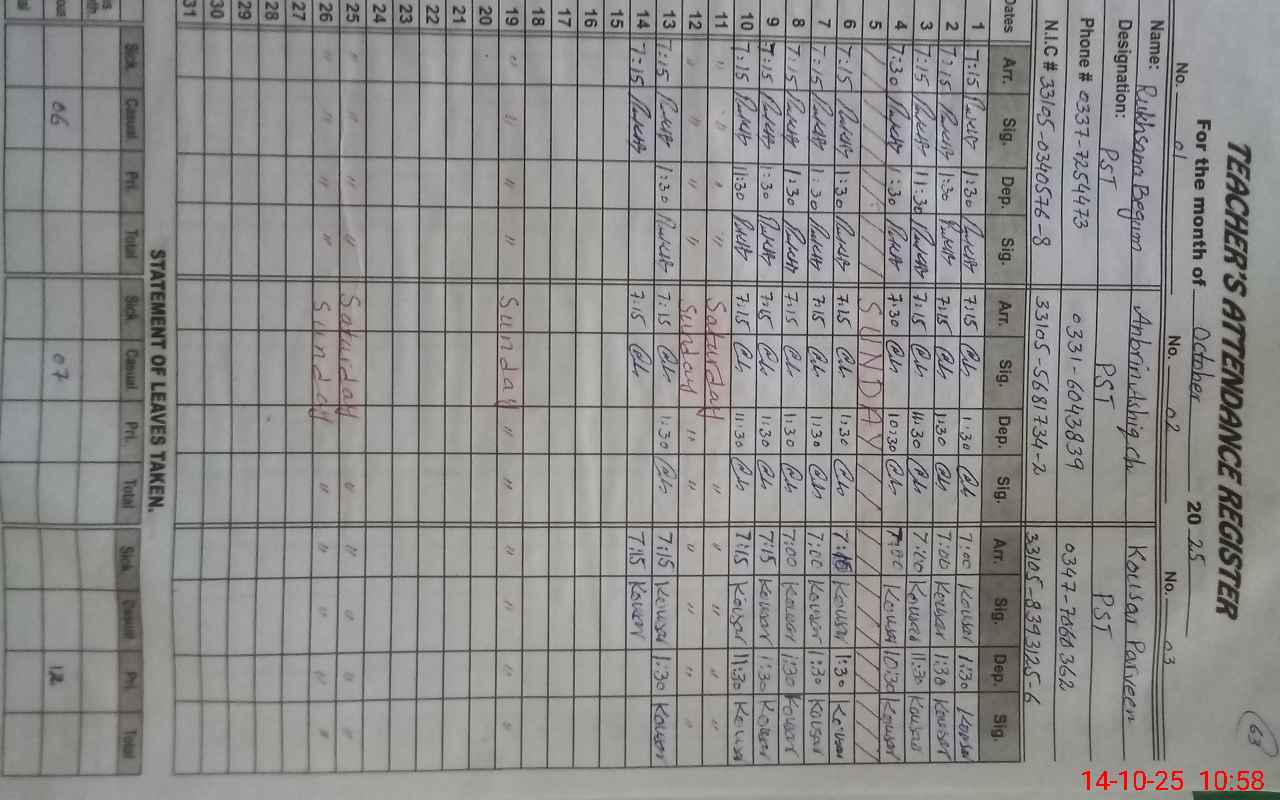 63
TEACHER'S ATTENDANCE REGISTER
For the month of October 2025
No. 01 No. 02 No. 03
Name: Rukhsana Begum Ambrin Ashiq Ch. Kousar Parveen
Designation: PST PST PST
Phone # 0337-7254473 0331-6043839 0347-7060362
N.I.C # 33105-0340576-8 33105-5681734-2 33105-8393125-6
Dates Arr. Sig. Dep. Sig. Arr. Sig. Dep. Sig. Arr. Sig. Dep. Sig.
1 7:15 1:30 7:15 1:30 7:00 Kousar 1:30 Kousar
2 7:15 1:30 7:15 1:30 7:00 Kousar 1:30 Kousar
3 7:15 11:30 7:15 11:30 7:00 Kousar 11:30 Kousar
4 7:30 1:30 7:30 10:30 7:00 Kousar 10:30 Kousar
5 SUNDAY
6 7:15 1:30 7:15 1:30 7:15 Kousar 1:30 Kousar
7 7:15 1:30 7:15 1:30 7:00 Kousar 1:30 Kousar
8 7:15 1:30 7:15 1:30 7:00 Kousar 1:30 Kousar
9 7:15 1:30 7:15 1:30 7:15 Kousar 1:30 Kousar
10 7:15 11:30 7:15 11:30 7:15 Kousar 11:30 Kousar
11 " " " " Saturday " " " " "
12 " " " " Sunday " " " " " "
13 7:15 1:30 7:15 1:30 7:15 Kousar 1:30 Kousar
14 7:15 7:15 7:15 Kousar
15
16
17
18
19 " " " " Sunday " " " " " "
20
21
22
23
24
25 " " " " Saturday " " " " "
26 " " " " Sunday " " " " "
27
28
29
30
31
STATEMENT OF LEAVES TAKEN.
Sick Casual Pri. Total Sick Casual Pri. Total Sick Casual Pri. Total
06 07 12
14-10-25 10:58